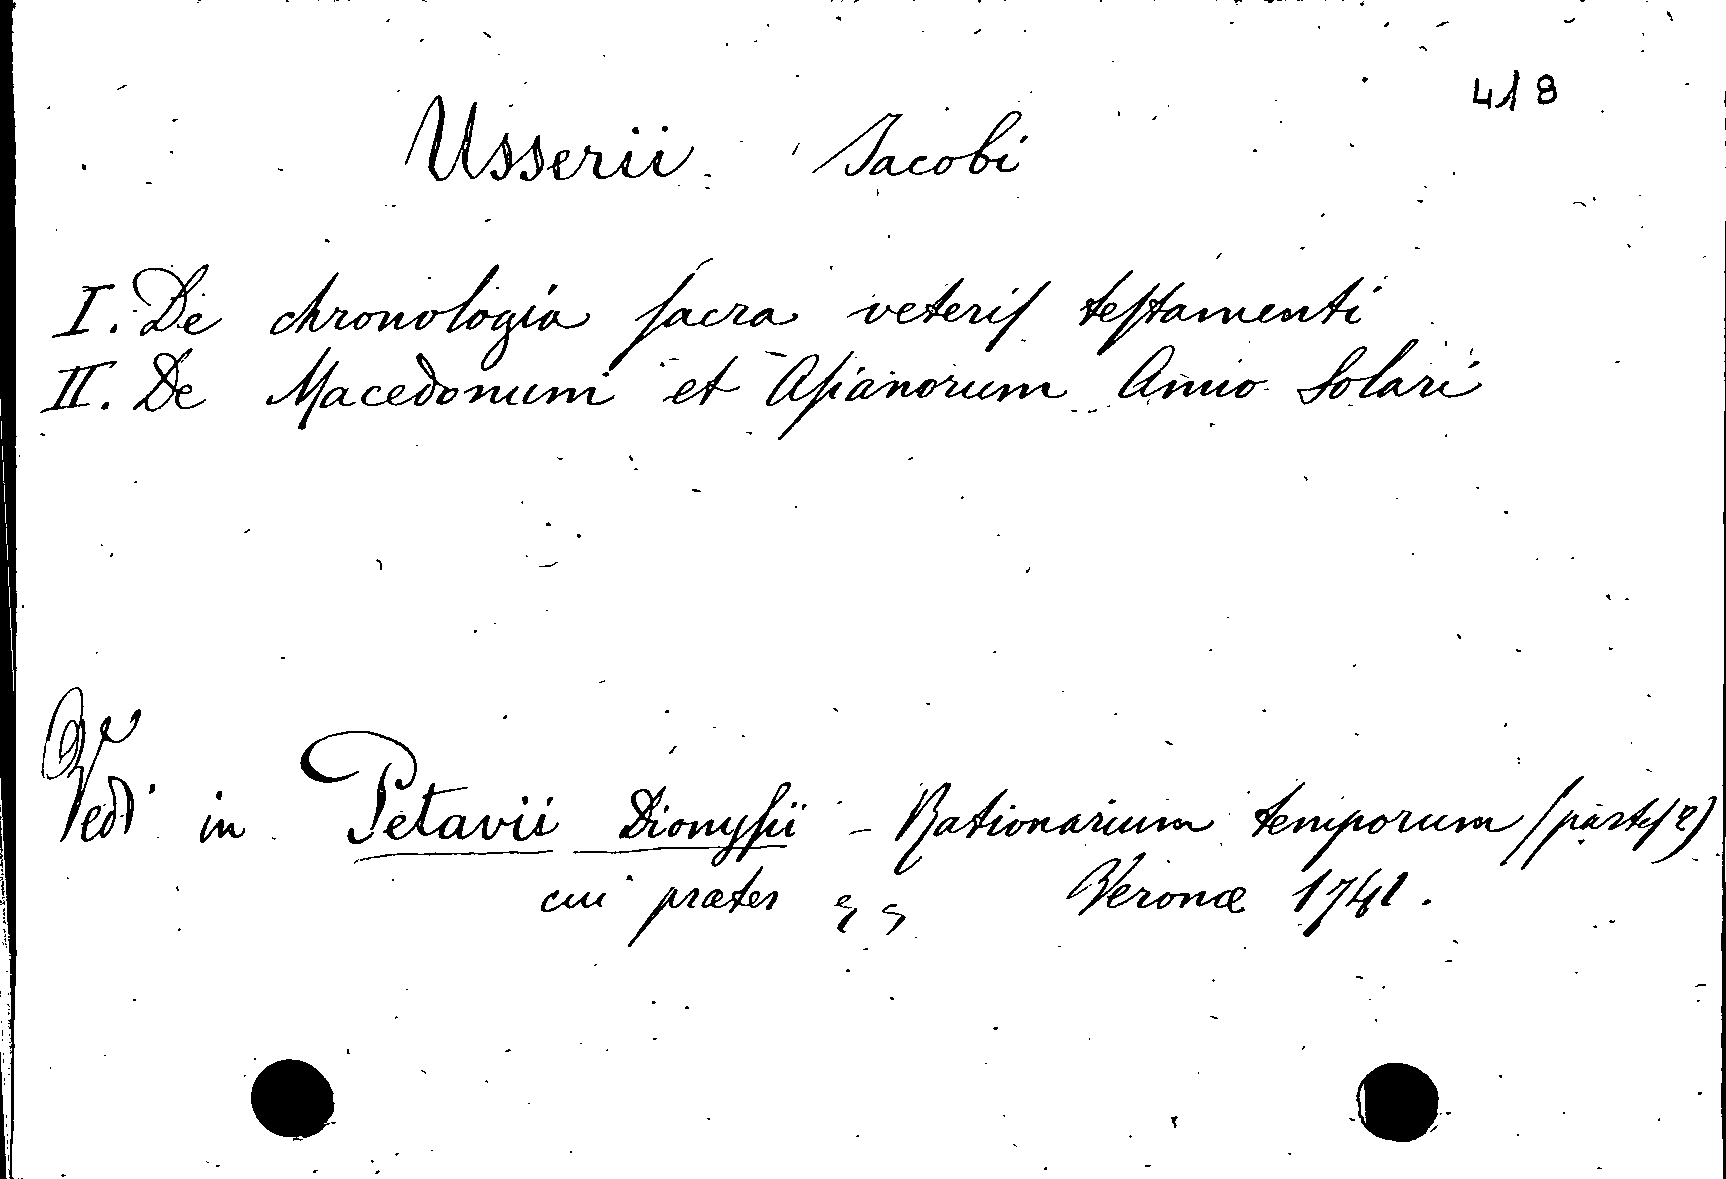 418
Usserii Jacobi
I. De chronologia ſacra veteriſ teſtamenti
II. De Macedonum et Aſianorum Anno Solari
Vedi in Petavii Dionyſii - Rationarium temporum (parteſ 2)
cui præter " " Veronæ 1741.